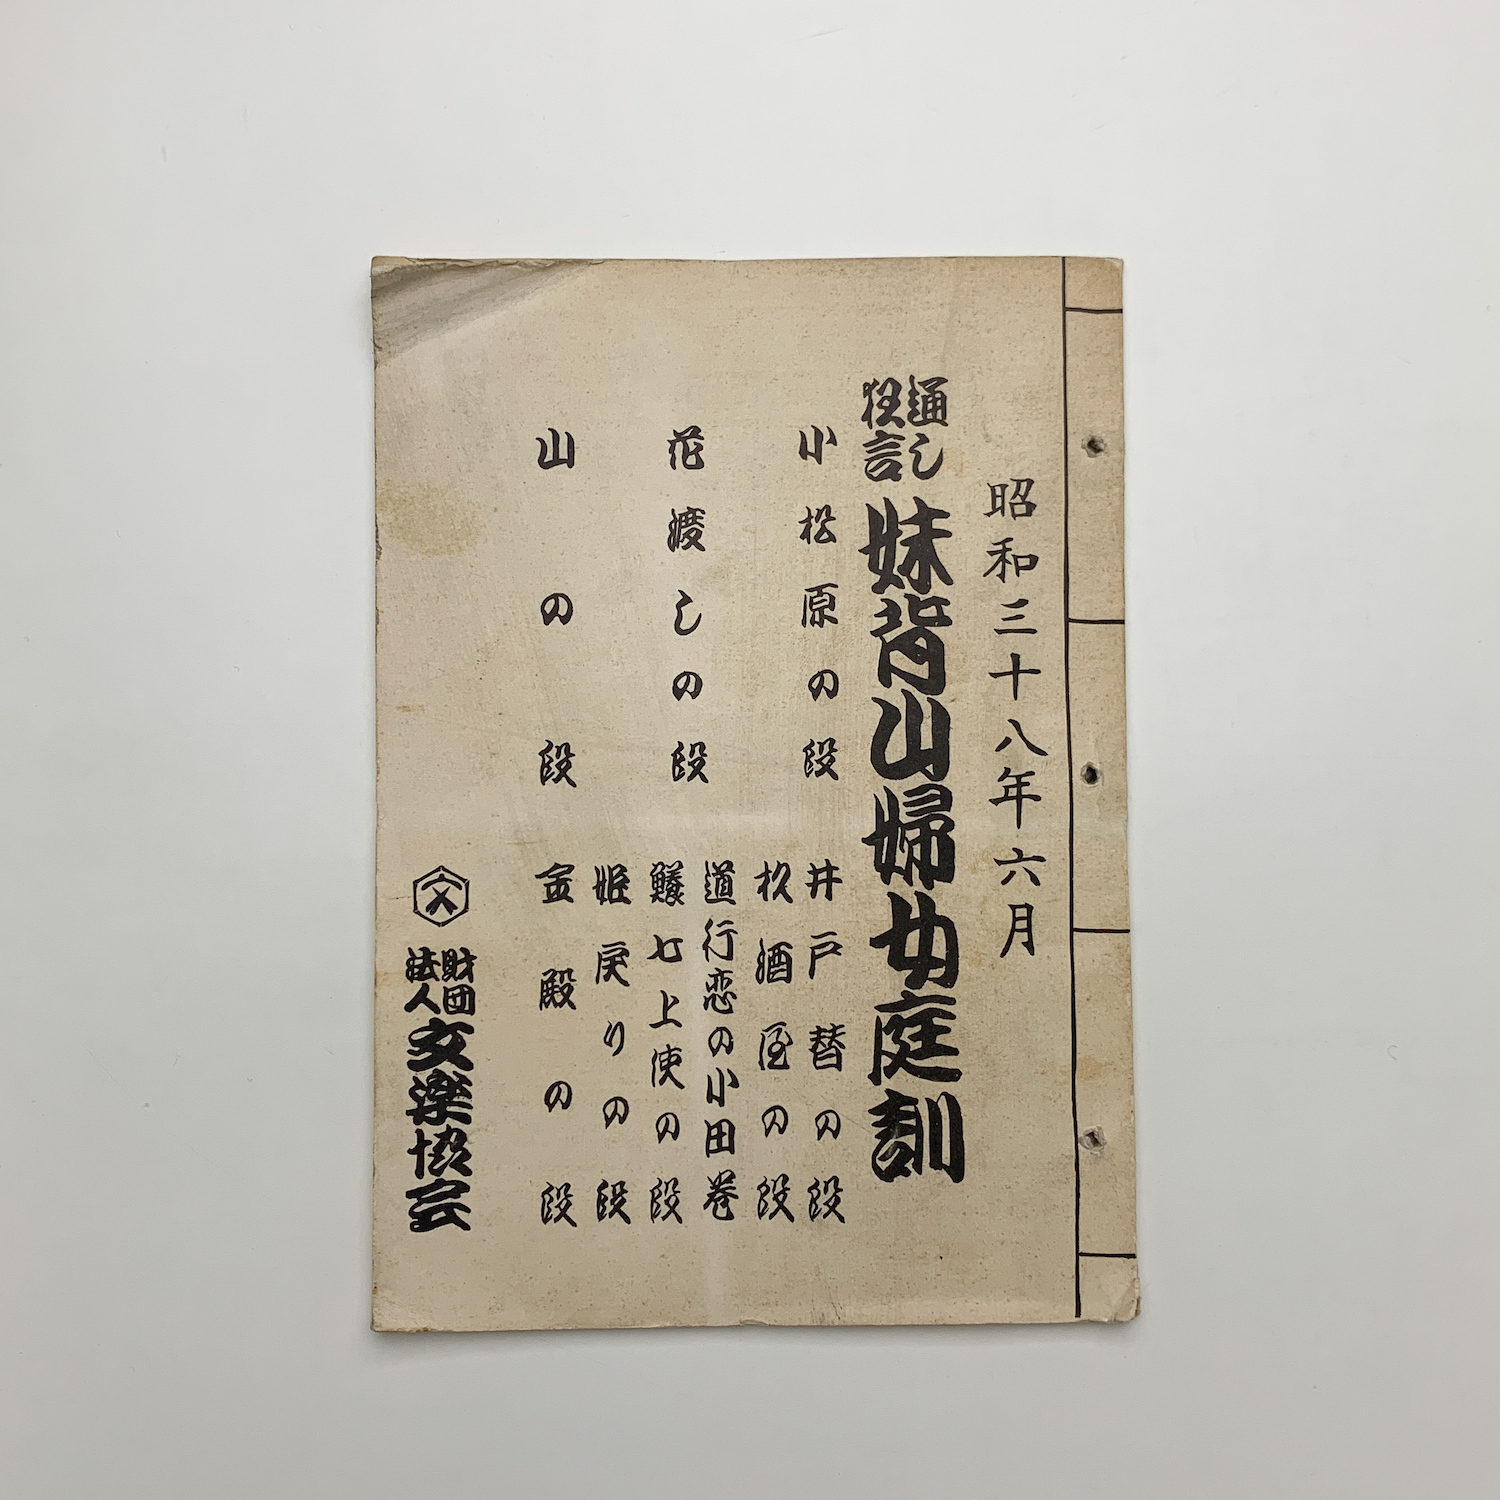 昭和三十八年六月
通し
狂言
妹背山婦女庭訓
小松原の段
花渡しの段
山の段
井戸替の段
杉酒屋の段
道行恋の小田巻
鱶七上使の段
姫戻りの段
金殿の段
文
財団
法人
文楽協会